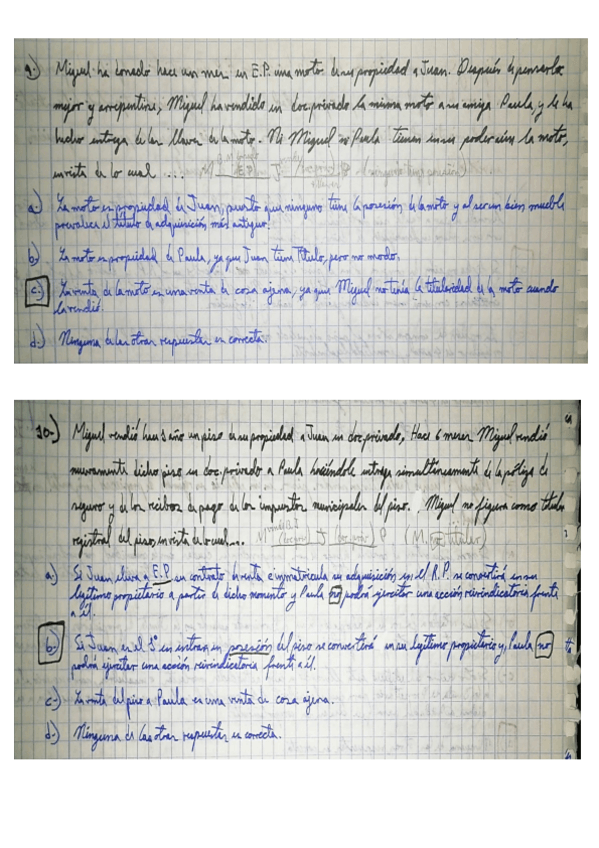 9-) Miguel ha donado hace un mes en E.P. una moto de su propiedad a Juan. Después de pensarlo
mejor y arrepentirse, Miguel ha vendido en doc. privado la misma moto a su amiga Paula, y le ha
hecho entrega de las llaves de la moto. Ni Miguel ni Paula tienen en su poder aún la moto,
en vista de lo cual ...
a.) La moto es propiedad de Juan, puesto que ninguno tiene la posesión de la moto y al ser un bien mueble
prevalece el título de adquisición más antiguo.
b.) La moto es propiedad de Paula, ya que Juan tiene Título, pero no modo.
c.) La venta de la moto es una venta de cosa ajena, ya que Miguel no tenía la titularidad de la moto cuando
la vendió.
d.) Ninguna de las otras respuestas es correcta.
10-) Miguel vendió hace 1 año un piso de su propiedad a Juan en doc. privado, Hace 6 meses Miguel vendió
nuevamente dicho piso en doc. privado a Paula haciéndole entrega simultáneamente de la póliza de
seguro y de los recibos de pago de los impuestos municipales del piso. Miguel no figura como titular
registral del piso en vista de lo cual...
a.) Si Juan eleva a E.P su contrato de venta e inmatricula su adquisición en el R.P. se convertirá en su
legítimo propietario a partir de dicho momento y Paula no podrá ejercitar una acción reivindicatoria frente
a él.
b.) Si Juan es el 1º en entrar en posesión del piso se convertirá en su legítimo propietario y, Paula no
podrá ejercitar una acción reivindicatoria frente a él.
c.-) La venta del piso a Paula es una venta de cosa ajena.
d.-) Ninguna de las otras respuestas es correcta.